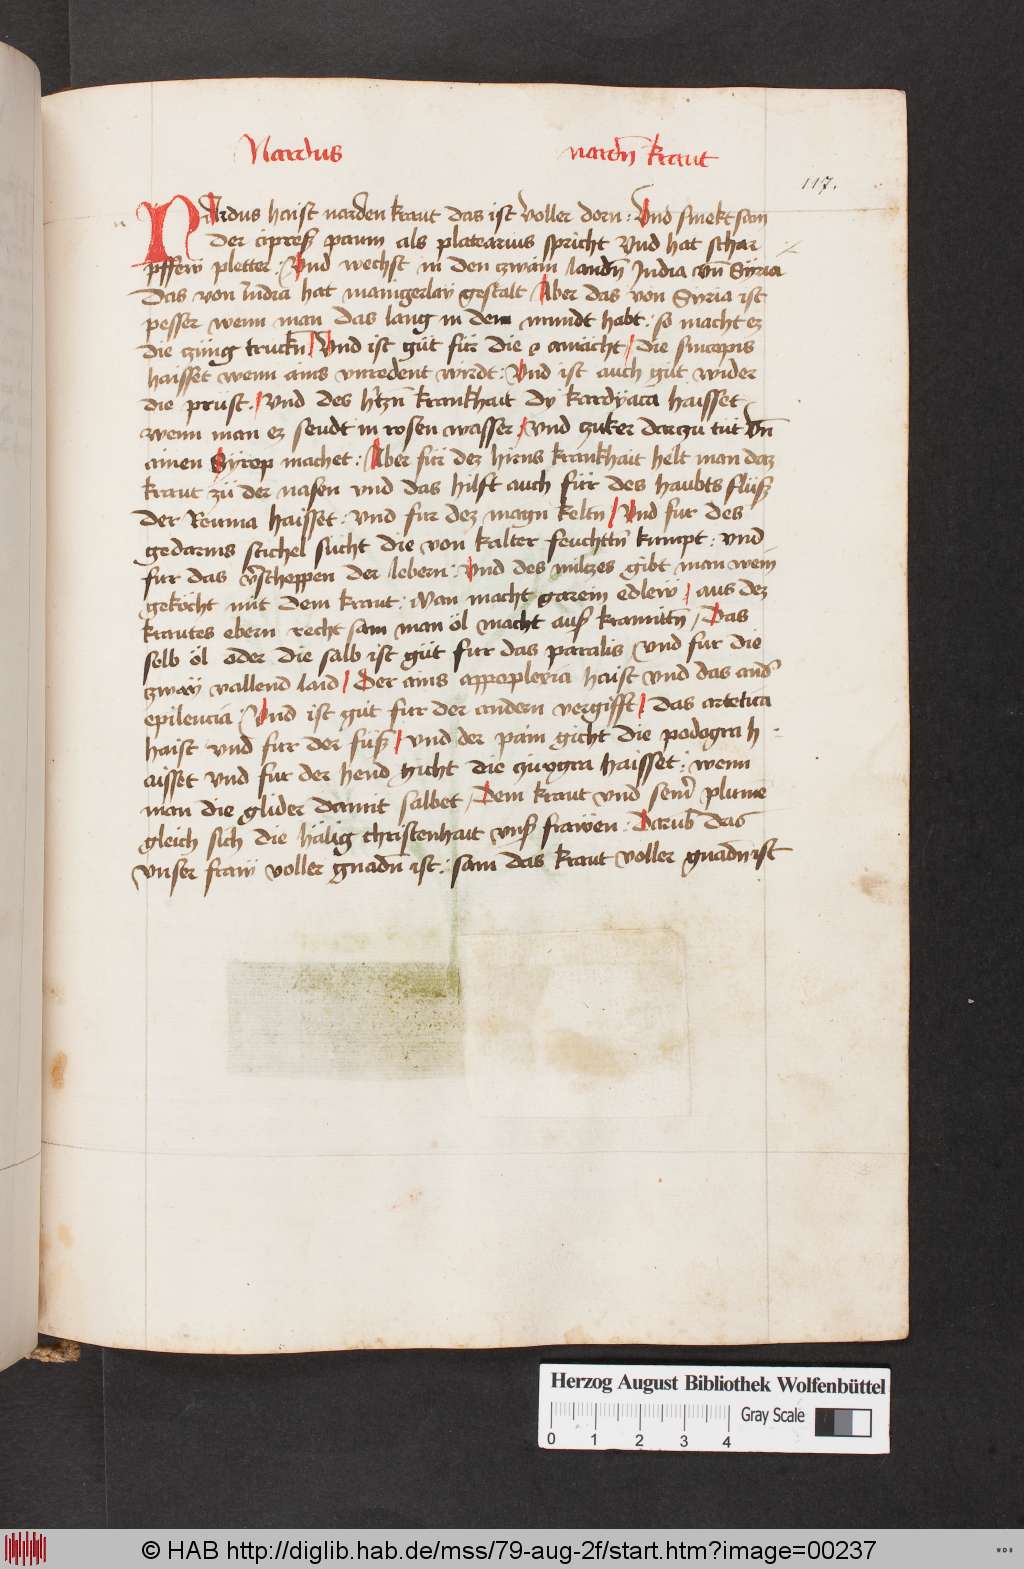 Nardus nardn̄ kraut
117.
NArdus haist narden kraut das ist voller dorn : Vnd smekt sam
der cipreß paum als platearius spricht Vnd hat schar
pffew pletter : Vnd wechst in den zwain landn̄ India vn̄ Syria
Das von India hat manigerlay gestalt Aber das von Syria ist
pesser wenn man das lang in dem mundt habt : so macht ez
die zung truckn̄ / Vnd ist gut für die amacht / die sincopis
haisset wenn ains vnredent wirdt : Vnd ist auch gut wider
die prust . / Vnd des h'tzn̄ krankhait dy kardyaca haisset
wenn man ez seudt in rosen wasser / vnd zuker darzu tut vn̄
ainen Syrop machet : Aber für dez hirns krankhait helt man daz
kraut zu der nasen vnd das hilft auch für des haubts fluß
der Reuma haisset : vnd fur dez magn̄ keltn̄ / Vnd fur des
gedarms stichel sucht die von kalter feuchttn̄ kumpt : vnd
fur das v'schoppen der lebern : Vnd des milczes gibt man wein
gekocht mit dem kraut : Man macht edlew / aus dez
krautes ebern recht sam man öl macht auß kramittn̄ / Das
selb öl oder die salb ist gut fur das paralis vnd fur die
zway vallend laid / Der ains appoplexia haist vnd das and'
epilencia : Vnd ist gut fur der andern vergifft / das artetica
haist vnd fur der fuß / vnd der pain gicht die podogra h
aisset vnd fur der hend gicht die haisset : wenn
man die glider damit salbet / Dem kraut vnd sein' plumē
gleich sich die hailig christenhait vnß frawen : Darub̄ das
vnser fraw voller gnadn̄ ist : sam das kraut voller gnadn̄ ist
Herzog August Bibliothek Wolfenbüttel
Gray Scale
0 1 2 3 4
© HAB http://diglib.hab.de/mss/79-aug-2f/start.htm?image=00237